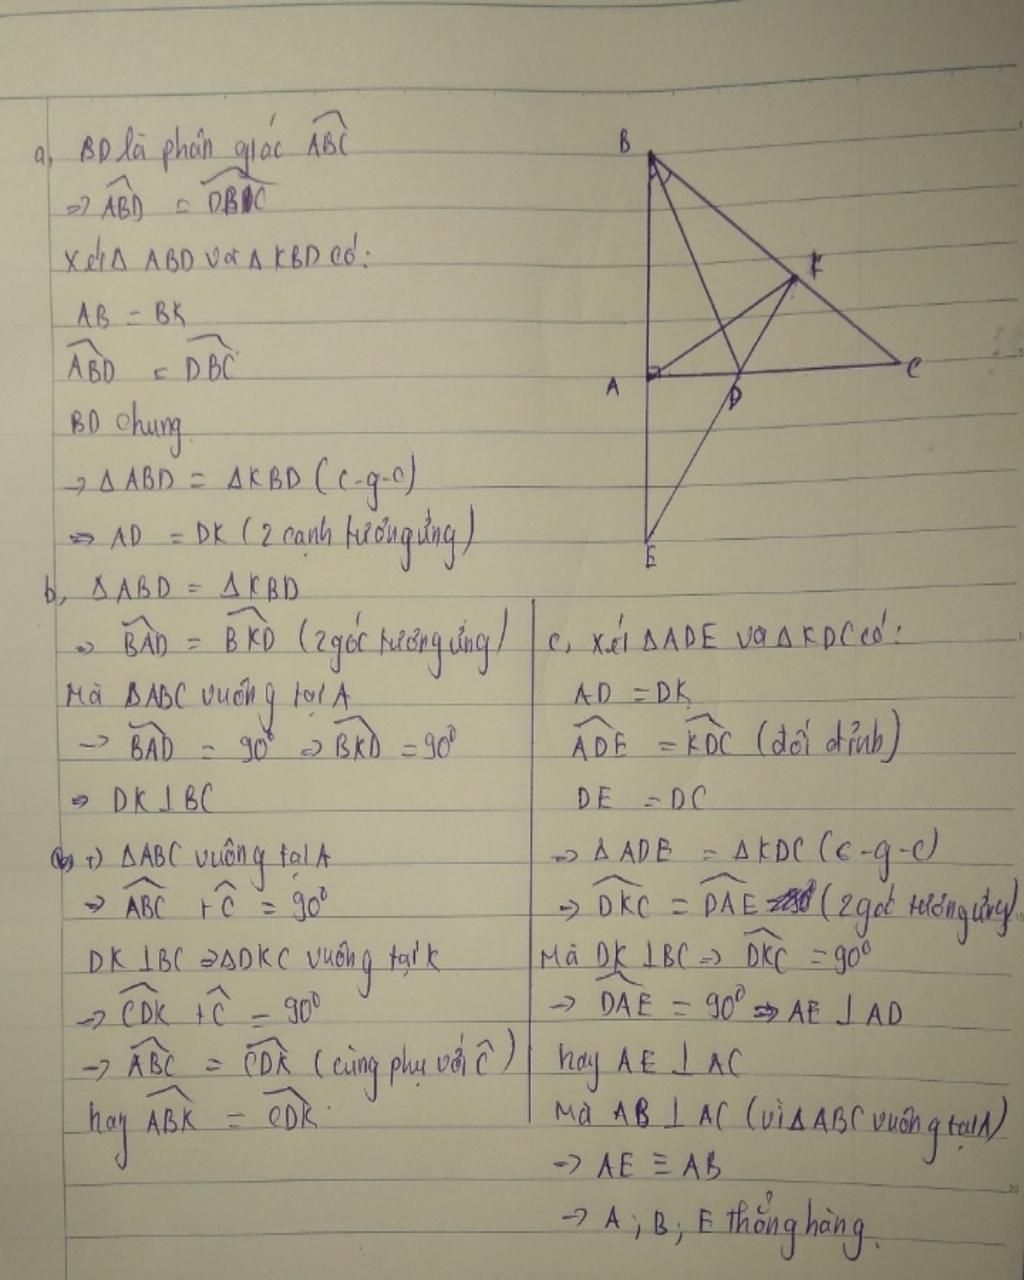 a, BD là phân giác ABC
=> ABD = DBC
Xét Δ ABD và Δ KBD có:
AB = BK
ABD = DBC
BD chung
-> Δ ABD = Δ KBD (c-g-c)
=> AD = DK (2 cạnh tương ứng)
b, Δ ABD = Δ KBD
=> BAD = BKD (2 góc tương ứng)
Mà ΔABC vuông tại A
-> BAD = 90⁰ => BKD = 90⁰
=> DK ⊥ BC
+) ΔABC vuông tại A
=> ABC + C = 90⁰
DK ⊥ BC => ΔDKC vuông tại K
-> CDK + C = 90⁰
-> ABC = CDK (cùng phụ với C)
hay ABK = CDK.
c, Xét ΔADE và ΔKDC có:
AD = DK
ADE = KDC (đối đỉnh)
DE = DC
-> ΔADE = ΔKDC (c-g-c)
-> DKC = DAE (2 góc tương ứng)
Mà DK ⊥ BC -> DKC = 90⁰
-> DAE = 90⁰ => AE ⊥ AD
hay AE ⊥ AC
Mà AB ⊥ AC (vì ΔABC vuông tại A)
-> AE ≡ AB
-> A; B; E thẳng hàng.
B
K
A
D
C
E